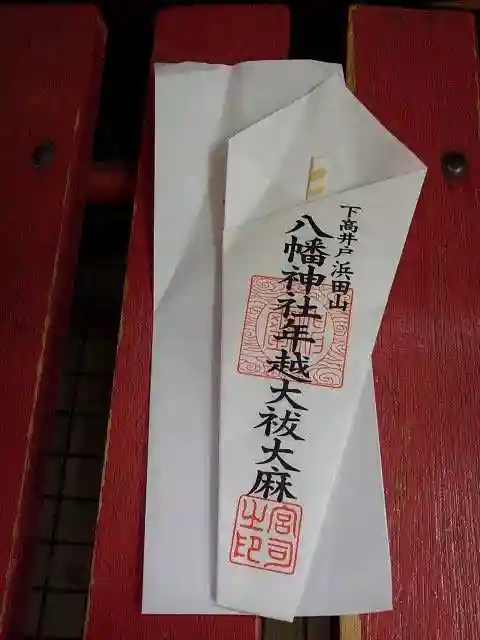 下高井戸浜田山
八幡神社年越大祓大麻
宮司之印